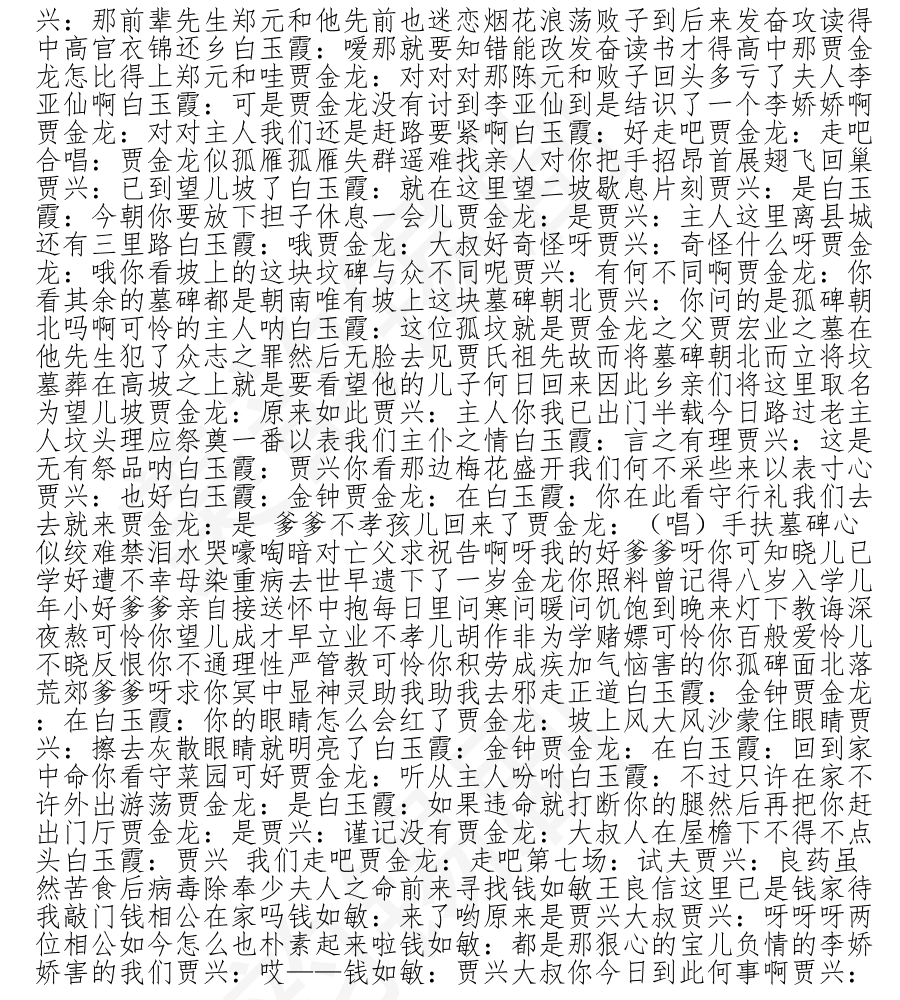 兴：那前辈先生郑元和他先前也迷恋烟花浪荡败子到后来发奋攻读得
中高官衣锦还乡白玉霞：嗳那就要知错能改发奋读书才得高中那贾金
龙怎比得上郑元和哇贾金龙：对对对那陈元和败子回头多亏了夫人李
亚仙啊白玉霞：可是贾金龙没有讨到李亚仙到是结识了一个李娇娇啊
贾金龙：对对主人我们还是赶路要紧啊白玉霞：好走吧贾金龙：走吧
合唱：贾金龙似孤雁孤雁失群遥难找亲人对你把手招昂首展翅飞回巢
贾兴：已到望儿坡了白玉霞：就在这里望二坡歇息片刻贾兴：是白玉
霞：今朝你要放下担子休息一会儿贾金龙：是贾兴：主人这里离县城
还有三里路白玉霞：哦贾金龙：大叔好奇怪呀贾兴：奇怪什么呀贾金
龙：哦你看坡上的这块坟碑与众不同呢贾兴：有何不同啊贾金龙：你
看其余的墓碑都是朝南唯有坡上这块墓碑朝北贾兴：你问的是孤碑朝
北吗啊可怜的主人呐白玉霞：这位孤坟就是贾金龙之父贾宏业之墓在
他先生犯了众志之罪然后无脸去见贾氏祖先故而将墓碑朝北而立将坟
墓葬在高坡之上就是要看望他的儿子何日回来因此乡亲们将这里取名
为望儿坡贾金龙：原来如此贾兴：主人你我已出门半载今日路过老主
人坟头理应祭奠一番以表我们主仆之情白玉霞：言之有理贾兴：这是
无有祭品呐白玉霞：贾兴你看那边梅花盛开我们何不采些来以表寸心
贾兴：也好白玉霞：金钟贾金龙：在白玉霞：你在此看守行礼我们去
去就来贾金龙：是 爹爹不孝孩儿回来了贾金龙：（唱）手扶墓碑心
似绞难禁泪水哭嚎啕暗对亡父求祝告啊呀我的好爹爹呀你可知晓儿已
学好遭不幸母染重病去世早遗下了一岁金龙你照料曾记得八岁入学儿
年小好爹爹亲自接送怀中抱每日里问寒问暖问饥饱到晚来灯下教诲深
夜熬可怜你望儿成才早立业不孝儿胡作非为学赌嫖可怜你百般爱怜儿
不晓反恨你不通理性严管教可怜你积劳成疾加气恼害的你孤碑面北落
荒郊爹爹呀求你冥中显神灵助我助我去邪走正道白玉霞：金钟贾金龙
：在白玉霞：你的眼睛怎么会红了贾金龙：坡上风大风沙蒙住眼睛贾
兴：擦去灰散眼睛就明亮了白玉霞：金钟贾金龙：在白玉霞：回到家
中命你看守菜园可好贾金龙：听从主人吩咐白玉霞：不过只许在家不
许外出游荡贾金龙：是白玉霞：如果违命就打断你的腿然后再把你赶
出门厅贾金龙：是贾兴：谨记没有贾金龙：大叔人在屋檐下不得不点
头白玉霞：贾兴 我们走吧贾金龙：走吧第七场：试夫贾兴：良药虽
然苦食后病毒除奉少夫人之命前来寻找钱如敏王良信这里已是钱家待
我敲门钱相公在家吗钱如敏：来了哟原来是贾兴大叔贾兴：呀呀呀两
位相公如今怎么也朴素起来啦钱如敏：都是那狠心的宝儿负情的李娇
娇害的我们贾兴：哎——钱如敏：贾兴大叔你今日到此何事啊贾兴：